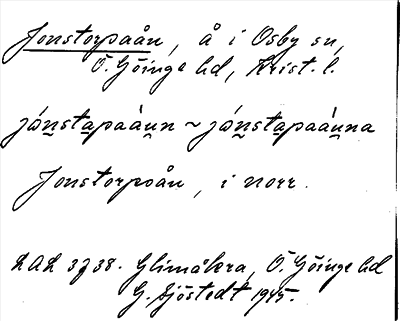 Jonstorpaån, å i Osby sn,
Ö. Göinge hd, Krist. l.
jo᷄n̥sta̱paàṵn ~ jo᷄n̥sta̱paàṵna
Jonstorpoån, i norr.
LAL 3738. Glimåkra, Ö. Göinge hd
G. Sjöstedt 1945.